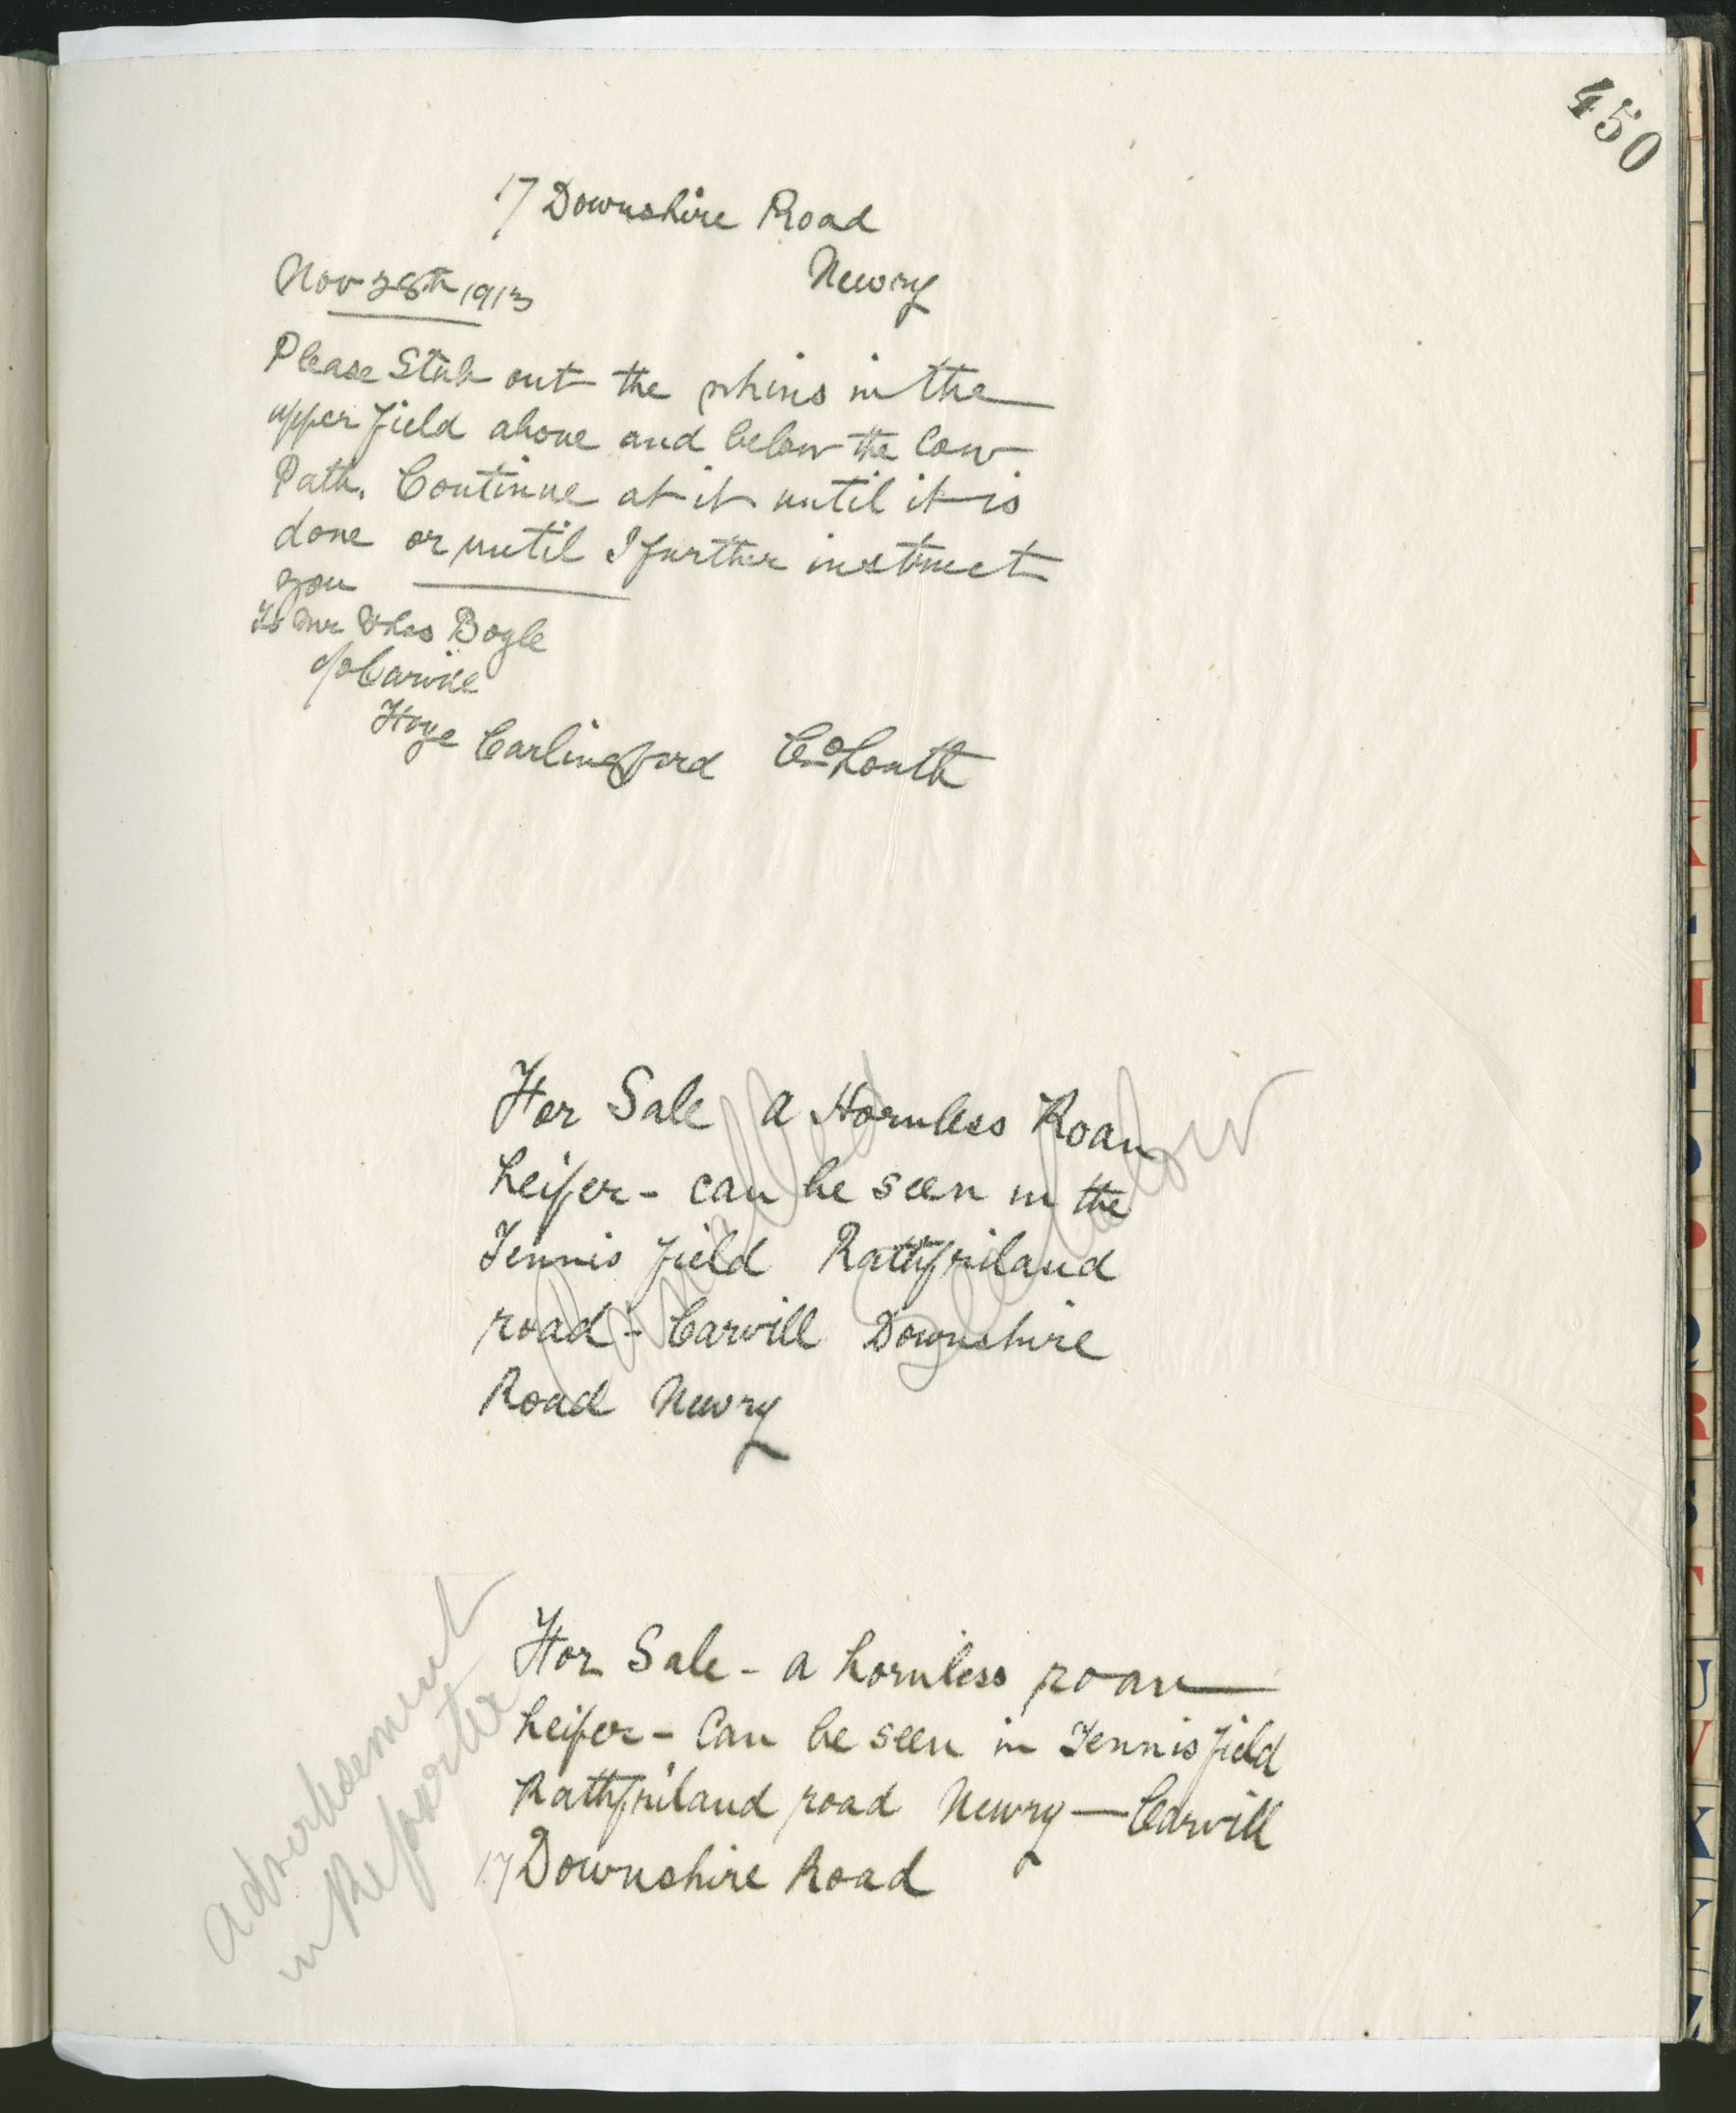 450
17 Downshire Road
Newry
Nov 28th 1913
Please Stub out the whins in the
upper field above and below the Cow
Path. Continue at it until it is
done or until I further instruct
you
To Mr Thos Boyle
c/o Carvill
Carlingford Co Louth
For Sale a Hornless Roan
heifer - can be seen in the
Tennis field Rathfriland
road - Carvill Downshire
Road Newry
For Sale - a hornless roan
heifer - Can be seen in Tennis field
Rathfriland road Newry — Carvill
17 Downshire Road
Advertisement
in Reporter